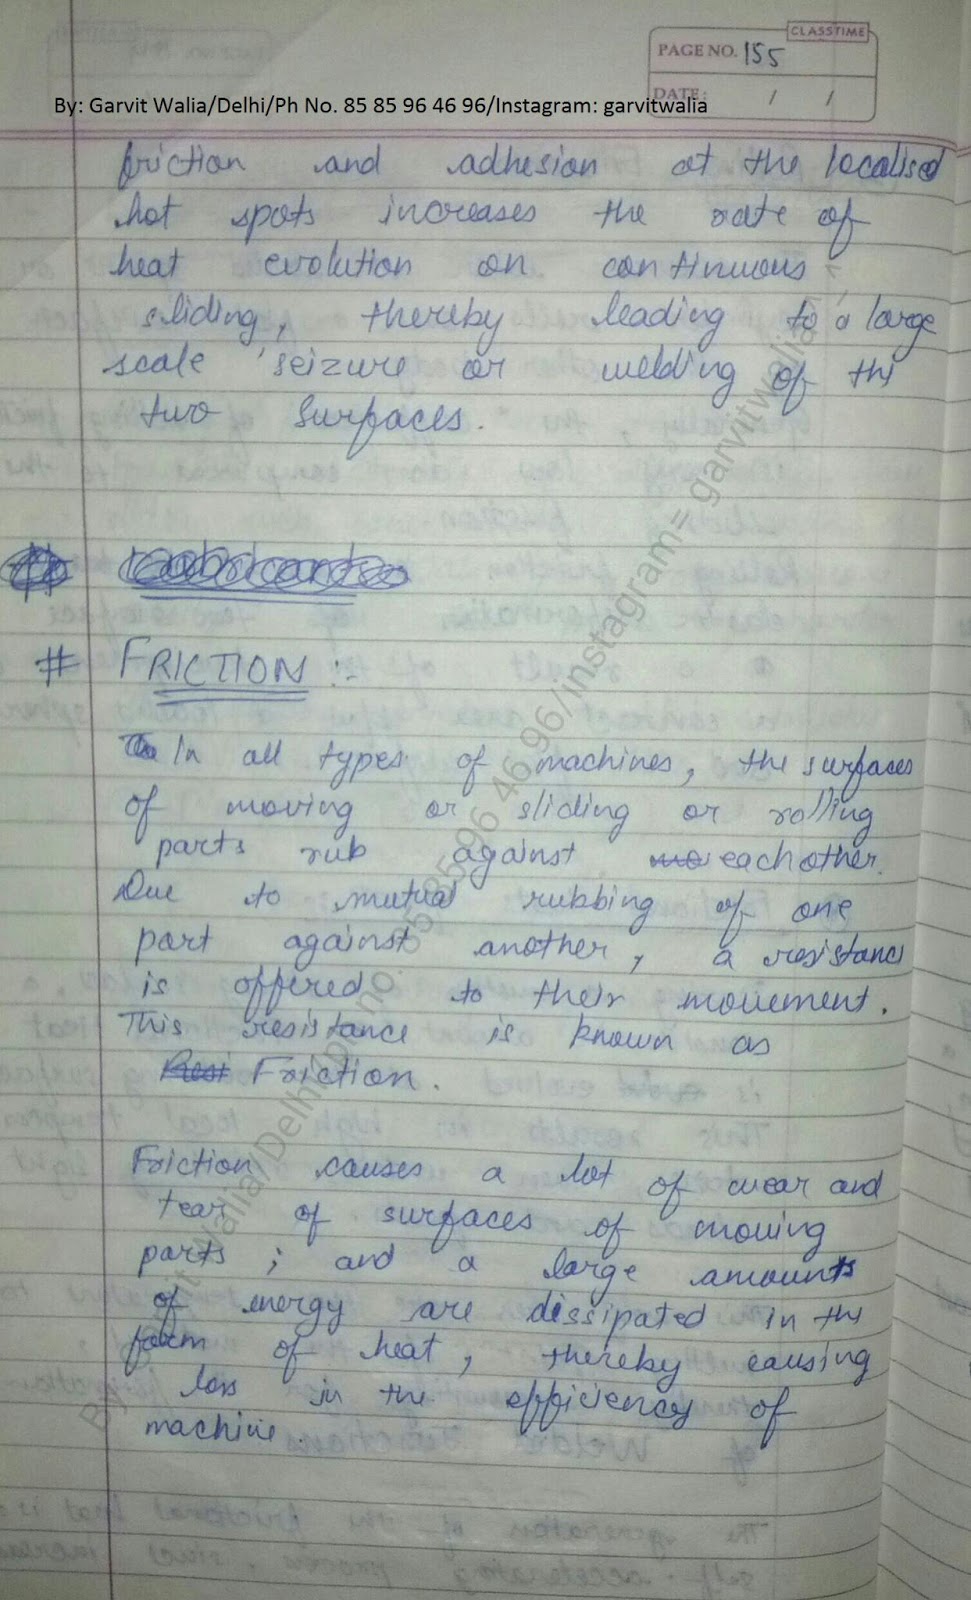 CLASSTIME
PAGE NO. 155
DATE: / /
By: Garvit Walia/Delhi/Ph No. 85 85 96 46 96/Instagram: garvitwalia
friction and adhesion at the localised
hot spots increases the rate of
heat evolution on continuous
sliding, thereby leading to a large
scale 'seizure or welding of the
two surfaces.
# FRICTION :-
In all types of machines, the surfaces
of moving or sliding or rolling
parts rub against each other.
Due to mutual rubbing of one
part against another, a resistance
is offered to their movement.
This resistance is known as
Friction.
Friction causes a lot of wear and
tear of surfaces of moving
parts ; and a large amounts
of energy are dissipated in the
form of heat, thereby causing
loss in the efficiency of
machine.
By: Garvit Walia/Delhi/ph no. 85 85 96 46 96/instagram= garvitwalia